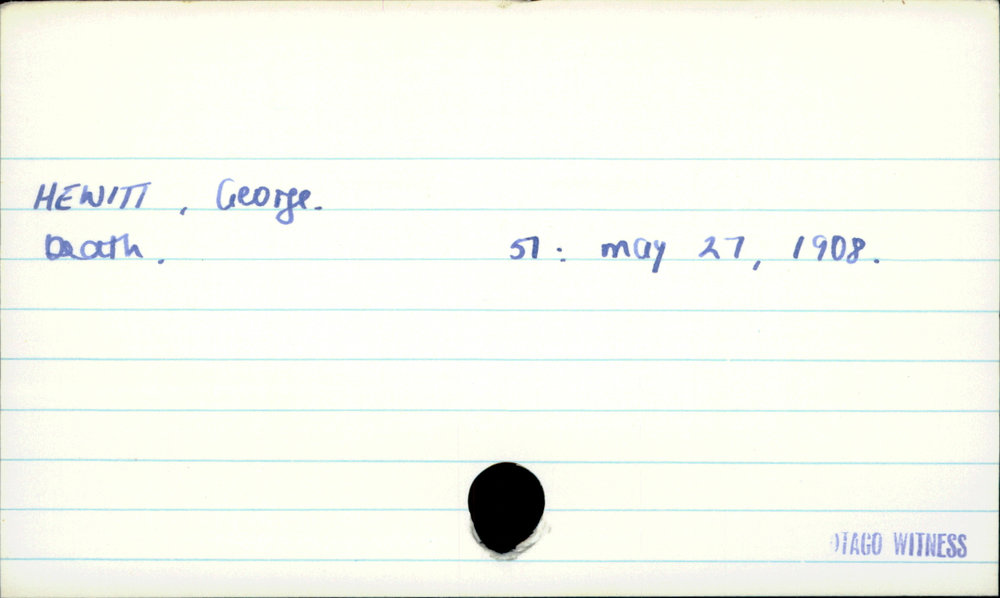 HEWITT, George.
Death. 51: may 27, 1908.
OTAGO WITNESS